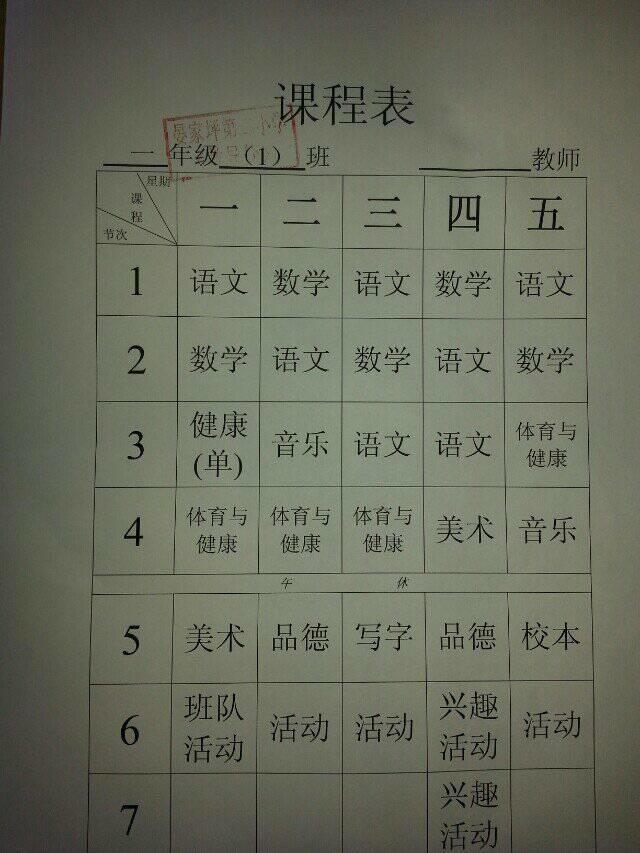 课程表
晏家坪第二小学
一 年级 （1） 班 教师
星期
课程
节次
一 二 三 四 五
1 语文 数学 语文 数学 语文
2 数学 语文 数学 语文 数学
3 健康(单) 音乐 语文 语文 体育与健康
4 体育与健康 体育与健康 体育与健康 美术 音乐
午 休
5 美术 品德 写字 品德 校本
6 班队活动 活动 活动 兴趣活动 活动
7 兴趣活动